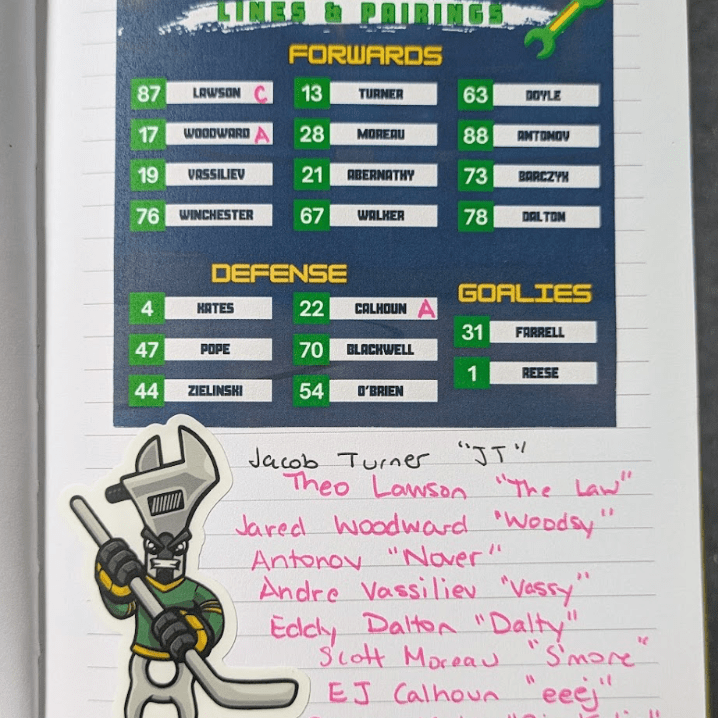 LINES & PAIRINGS
FORWARDS
87 LAWSON C 13 TURNER 63 DOYLE
17 WOODWARD A 28 MOREAU 88 ANTONOV
19 VASSILIEV 21 ABERNATHY 73 BARCZYK
76 WINCHESTER 67 WALKER 78 DALTON
DEFENSE
4 KATES 22 CALHOUN A
47 POPE 70 BLACKWELL
44 ZIELINSKI 54 O'BRIEN
GOALIES
31 FARRELL
1 REESE
Jacob Turner "JT"
Theo Lawson "The Law"
Jared Woodward "Woodsy"
Antonov "Nover"
Andre Vassiliev "Vassy"
Eddy Dalton "Dalty"
Scott Moreau "S'more"
EJ Calhoun "eeej"